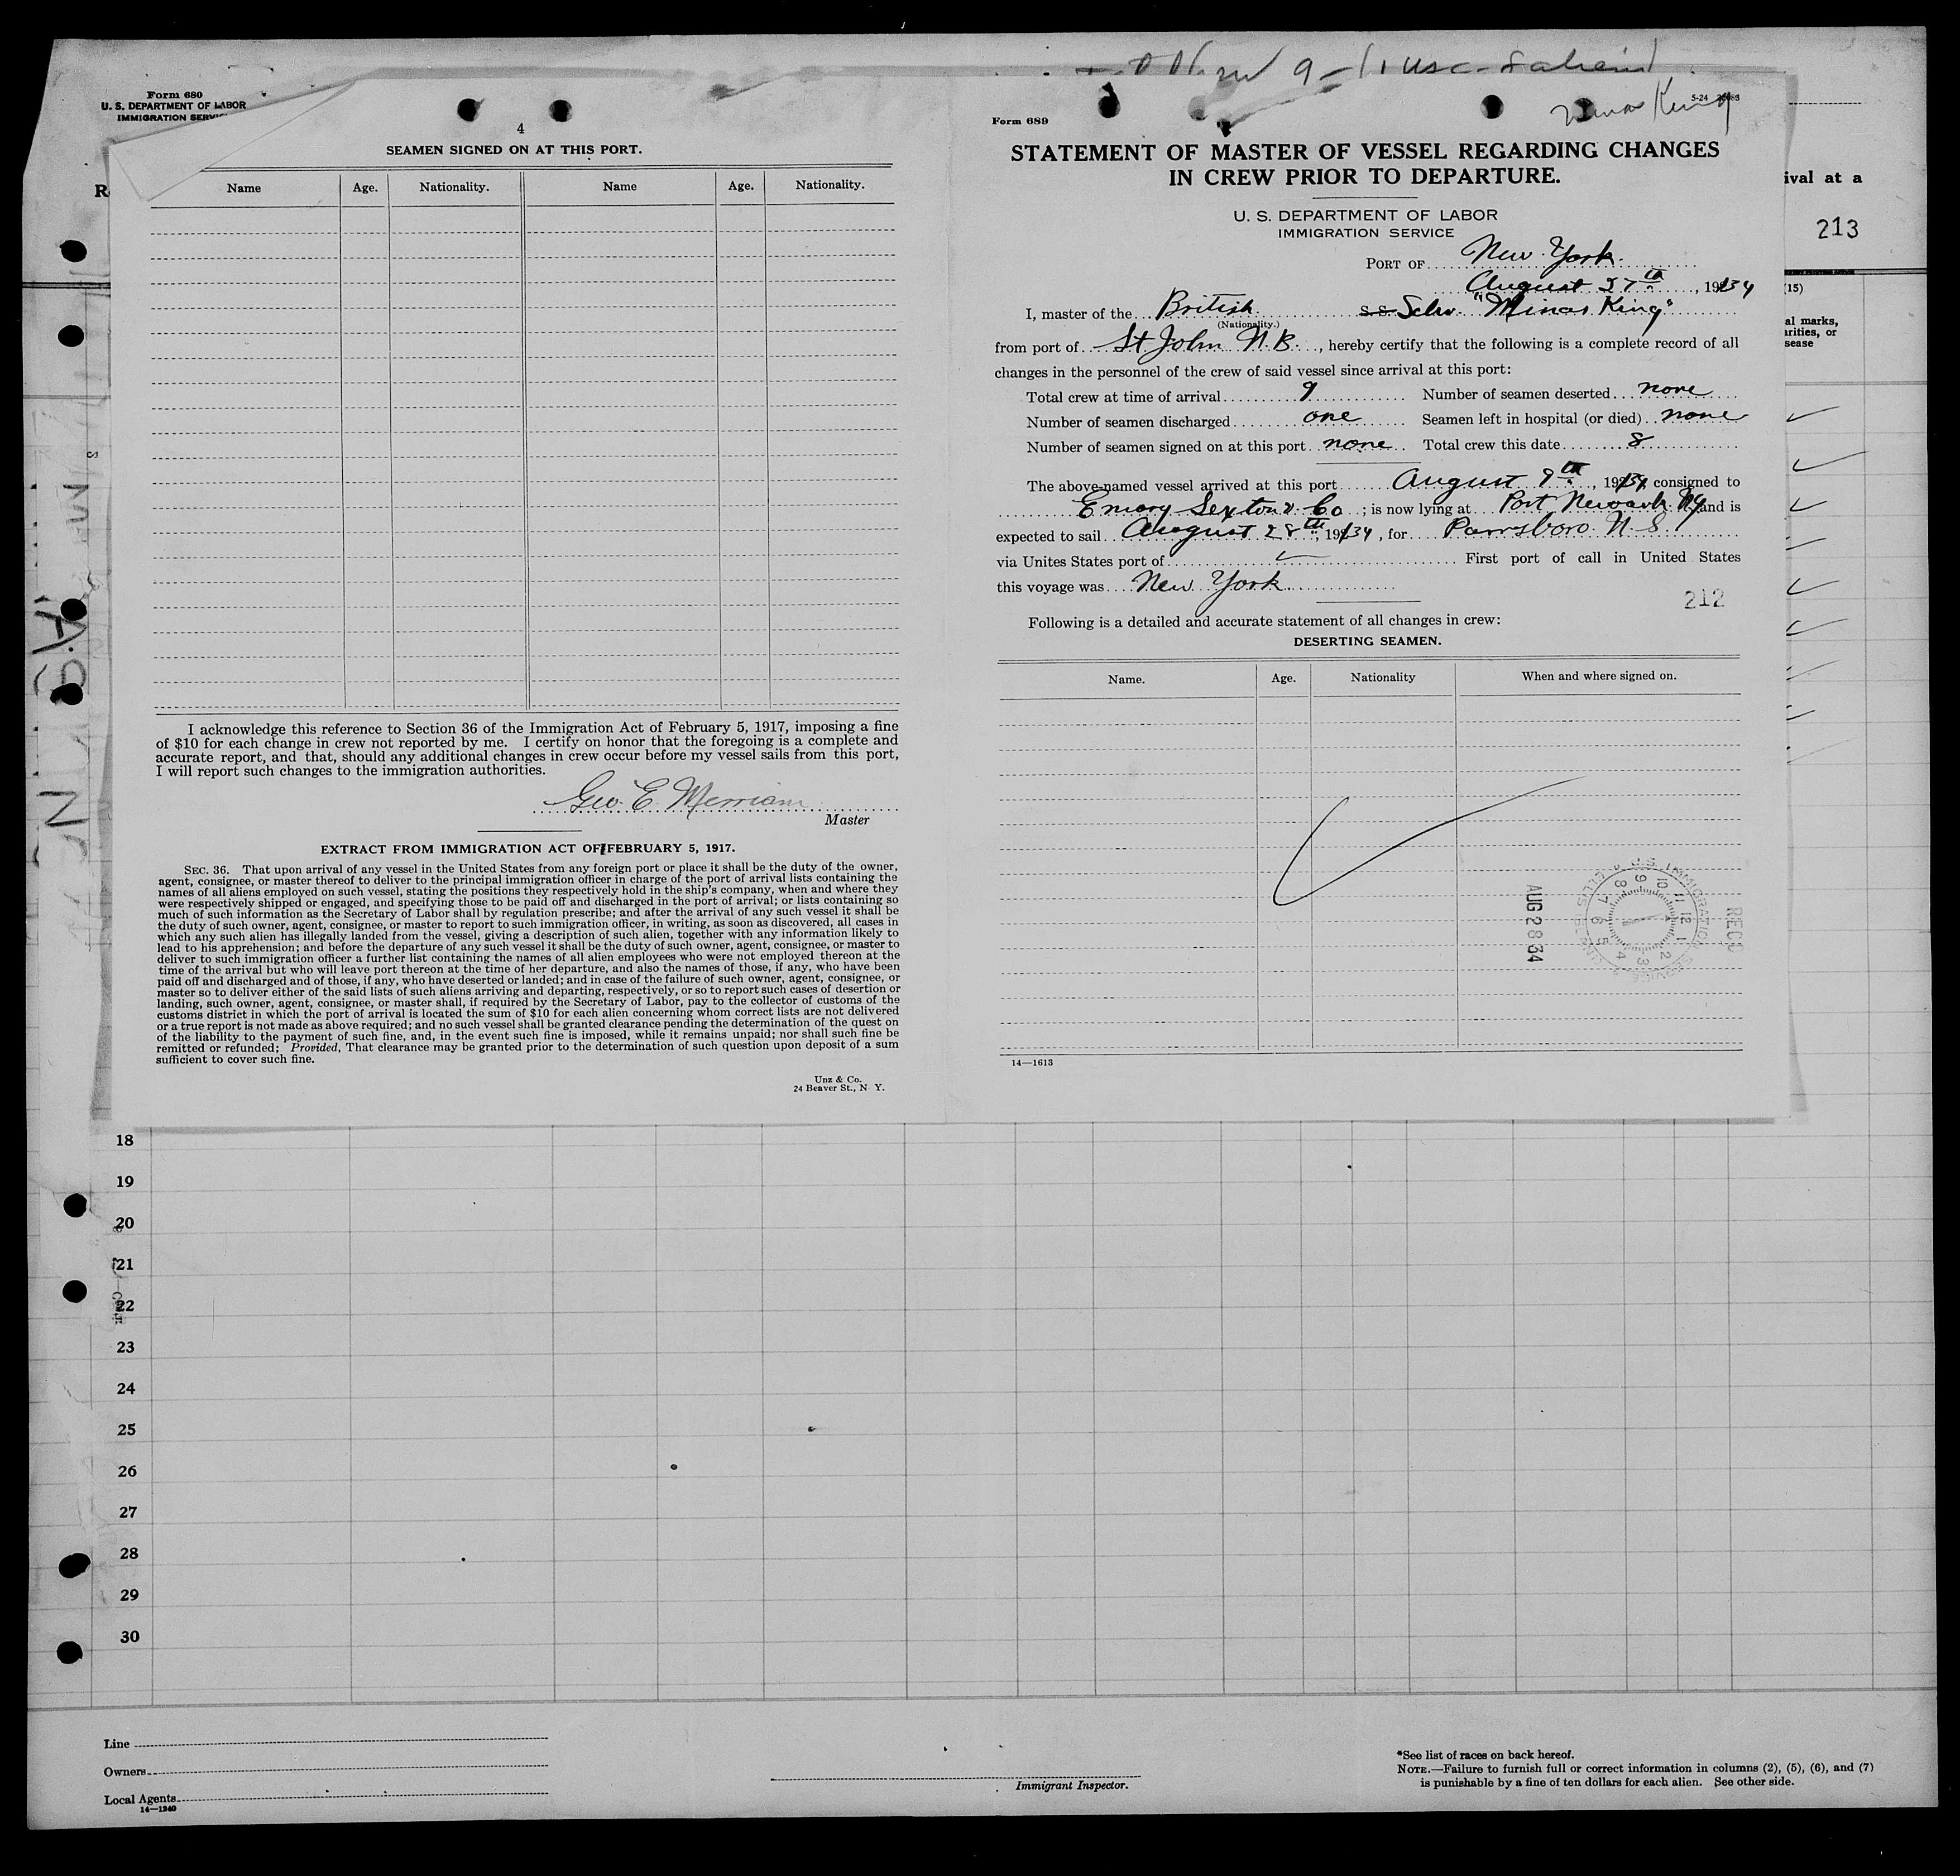 Form 680
U. S. DEPARTMENT OF LABOR
IMMIGRATION SERVI
4
SEAMEN SIGNED ON AT THIS PORT.
Name Age. Nationality. Name Age. Nationality.
I acknowledge this reference to Section 36 of the Immigration Act of February 5, 1917, imposing a fine
of $10 for each change in crew not reported by me. I certify on honor that the foregoing is a complete and
accurate report, and that, should any additional changes in crew occur before my vessel sails from this port,
I will report such changes to the immigration authorities.
Geo. E. Merriam
Master
EXTRACT FROM IMMIGRATION ACT OF FEBRUARY 5, 1917.
SEC. 36. That upon arrival of any vessel in the United States from any foreign port or place it shall be the duty of the owner,
agent, consignee, or master thereof to deliver to the principal immigration officer in charge of the port of arrival lists containing the
names of all aliens employed on such vessel, stating the positions they respectively hold in the ship's company, when and where they
were respectively shipped or engaged, and specifying those to be paid off and discharged in the port of arrival; or lists containing so
much of such information as the Secretary of Labor shall by regulation prescribe; and after the arrival of any such vessel it shall be
the duty of such owner, agent, consignee, or master to report to such immigration officer, in writing, as soon as discovered, all cases in
which any such alien has illegally landed from the vessel, giving a description of such alien, together with any information likely to
lead to his apprehension; and before the departure of any such vessel it shall be the duty of such owner, agent, consignee, or master to
deliver to such immigration officer a further list containing the names of all alien employees who were not employed thereon at the
time of the arrival but who will leave port thereon at the time of her departure, and also the names of those, if any, who have been
paid off and discharged and of those, if any, who have deserted or landed; and in case of the failure of such owner, agent, consignee, or
master so to deliver either of the said lists of such aliens arriving and departing, respectively, or so to report such cases of desertion or
landing, such owner, agent, consignee, or master shall, if required by the Secretary of Labor, pay to the collector of customs of the
customs district in which the port of arrival is located the sum of $10 for each alien concerning whom correct lists are not delivered
or a true report is not made as above required; and no such vessel shall be granted clearance pending the determination of the quest on
of the liability to the payment of such fine, and, in the event such fine is imposed, while it remains unpaid; nor shall such fine be
remitted or refunded; Provided, That clearance may be granted prior to the determination of such question upon deposit of a sum
sufficient to cover such fine.
Unz & Co.
24 Beaver St., N Y.
Minas King
5-24
Form 689
STATEMENT OF MASTER OF VESSEL REGARDING CHANGES
IN CREW PRIOR TO DEPARTURE.
U. S. DEPARTMENT OF LABOR
IMMIGRATION SERVICE
PORT OF New York
August 27th, 1934
I, master of the British s.s. Schr. "Minas King"
(Nationality.)
from port of St John N.B., hereby certify that the following is a complete record of all
changes in the personnel of the crew of said vessel since arrival at this port:
Total crew at time of arrival 9 Number of seamen deserted none
Number of seamen discharged one Seamen left in hospital (or died) none
Number of seamen signed on at this port none Total crew this date 8
The above-named vessel arrived at this port August 9th, 1934 consigned to
Emory Sexton & Co; is now lying at Port Newark NJ and is
expected to sail August 28th, 1934, for Parrsboro N.S.
via Unites States port of First port of call in United States
this voyage was New York
212
Following is a detailed and accurate statement of all changes in crew:
DESERTING SEAMEN.
Name. Age. Nationality When and where signed on.
AUG 28 34
RECD
14—1613
ival at a
213
(15)
al marks,
arities, or
sease
18
19
20
21
22
23
24
25
26
27
28
29
30
Line
Owners
Local Agents
14—1240
Immigrant Inspector.
*See list of races on back hereof.
NOTE.—Failure to furnish full or correct information in columns (2), (5), (6), and (7)
is punishable by a fine of ten dollars for each alien. See other side.